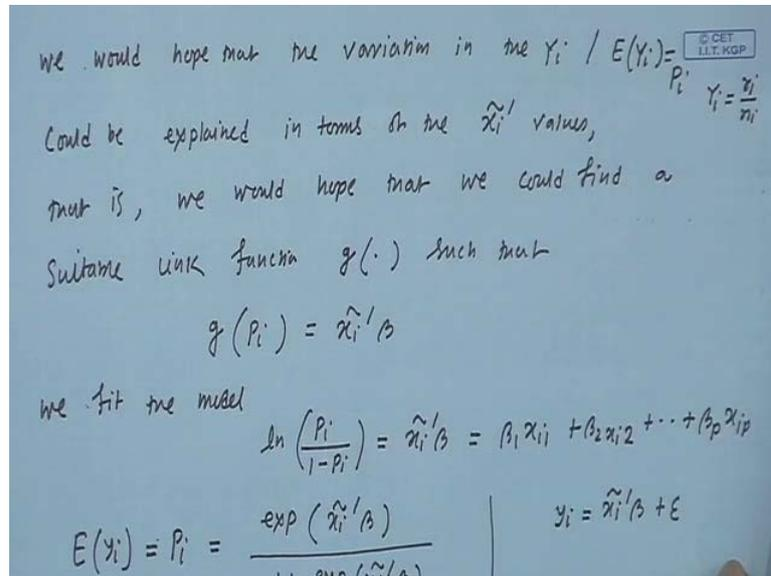 we would hope that the variation in the Yi / E(Yi) = Pi
© CET
I.I.T. KGP
Yi = ri/ni
Could be explained in terms of the x̃i' values,
that is, we would hope that we could find a
Suitable link function g(·) such that
g(Pi) = x̃i'β
we fit the model
ln(Pi/(1-Pi)) = x̃i'β = β1xi1 + β2xi2 + ·· + βpxip
E(yi) = Pi = exp(x̃i'β)
yi = x̃i'β + ε
exp(x̃i'β)